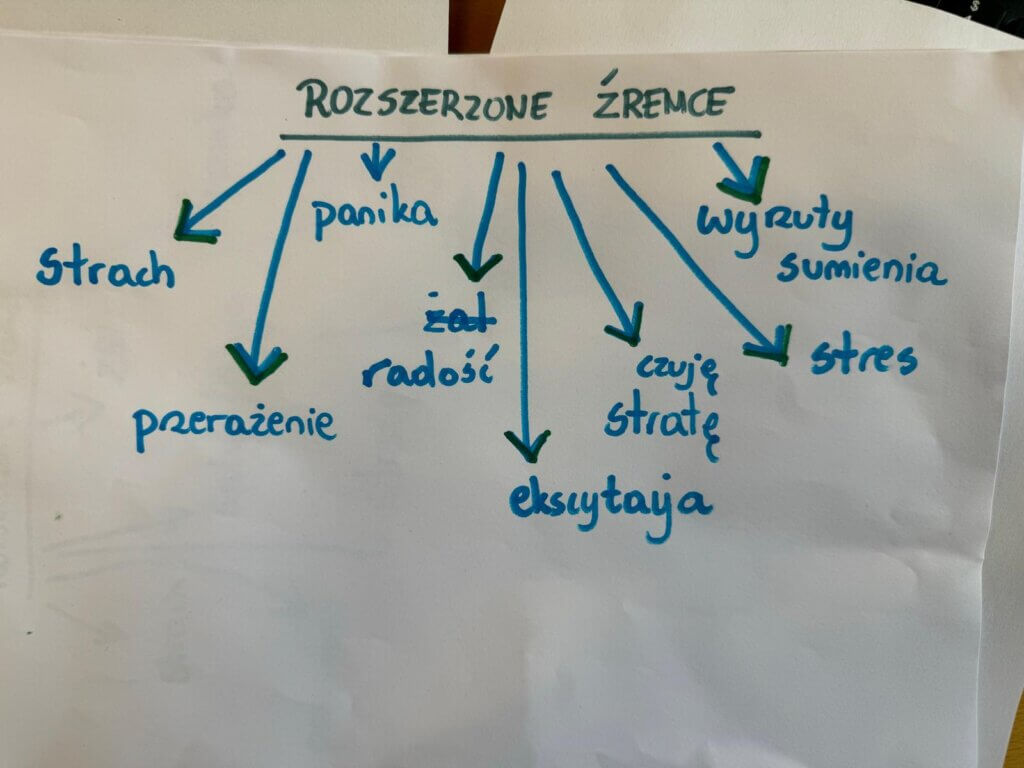 ROZSZERZONE ŹREMCE
strach
przerażenie
panika
żal
radość
ekscytacja
czuję
stratę
stres
wyrzuty
sumienia